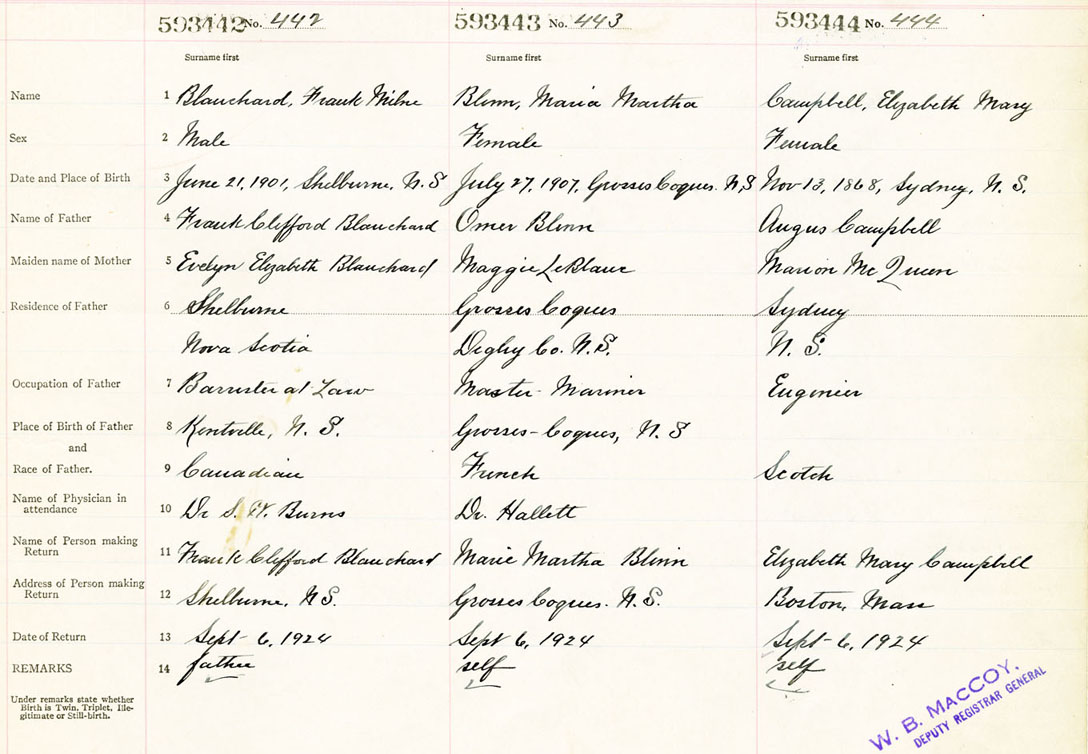 593442 No. 442 593443 No. 443 593444 No. 444
Surname first Surname first Surname first
Name 1 Blanchard, Frank Milne Blinn, Maria Martha Campbell, Elizabeth Mary
Sex 2 Male Female Female
Date and Place of Birth 3 June 21, 1901, Shelburne, N.S July 27, 1907, Grosses Coques. N.S Nov 13, 1868, Sydney, N.S.
Name of Father 4 Frank Clifford Blanchard Omer Blinn Angus Campbell
Maiden name of Mother 5 Evelyn Elizabeth Blanchard Maggie LeBlanc Marion McQueen
Residence of Father 6 Shelburne Grosses Coques Sydney
Nova Scotia Digby Co. N.S. N.S.
Occupation of Father 7 Barrister at Law Master-Mariner Engineer
Place of Birth of Father 8 Kentville, N.S. Grosses-Coques, N.S
and
Race of Father. 9 Canadian French Scotch
Name of Physician in
attendance 10 Dr S. W. Burns Dr. Hallett
Name of Person making
Return 11 Frank Clifford Blanchard Marie Martha Blinn Elizabeth Mary Campbell
Address of Person making
Return 12 Shelburne, N.S. Grosses Coques. N.S. Boston, Mass
Date of Return 13 Sept-6, 1924 Sept 6, 1924 Sept-6, 1924
REMARKS 14 father self self
Under remarks state whether
Birth is Twin, Triplet, Ille-
gitimate or Still-birth.
W. B. MACCOY,
DEPUTY REGISTRAR GENERAL